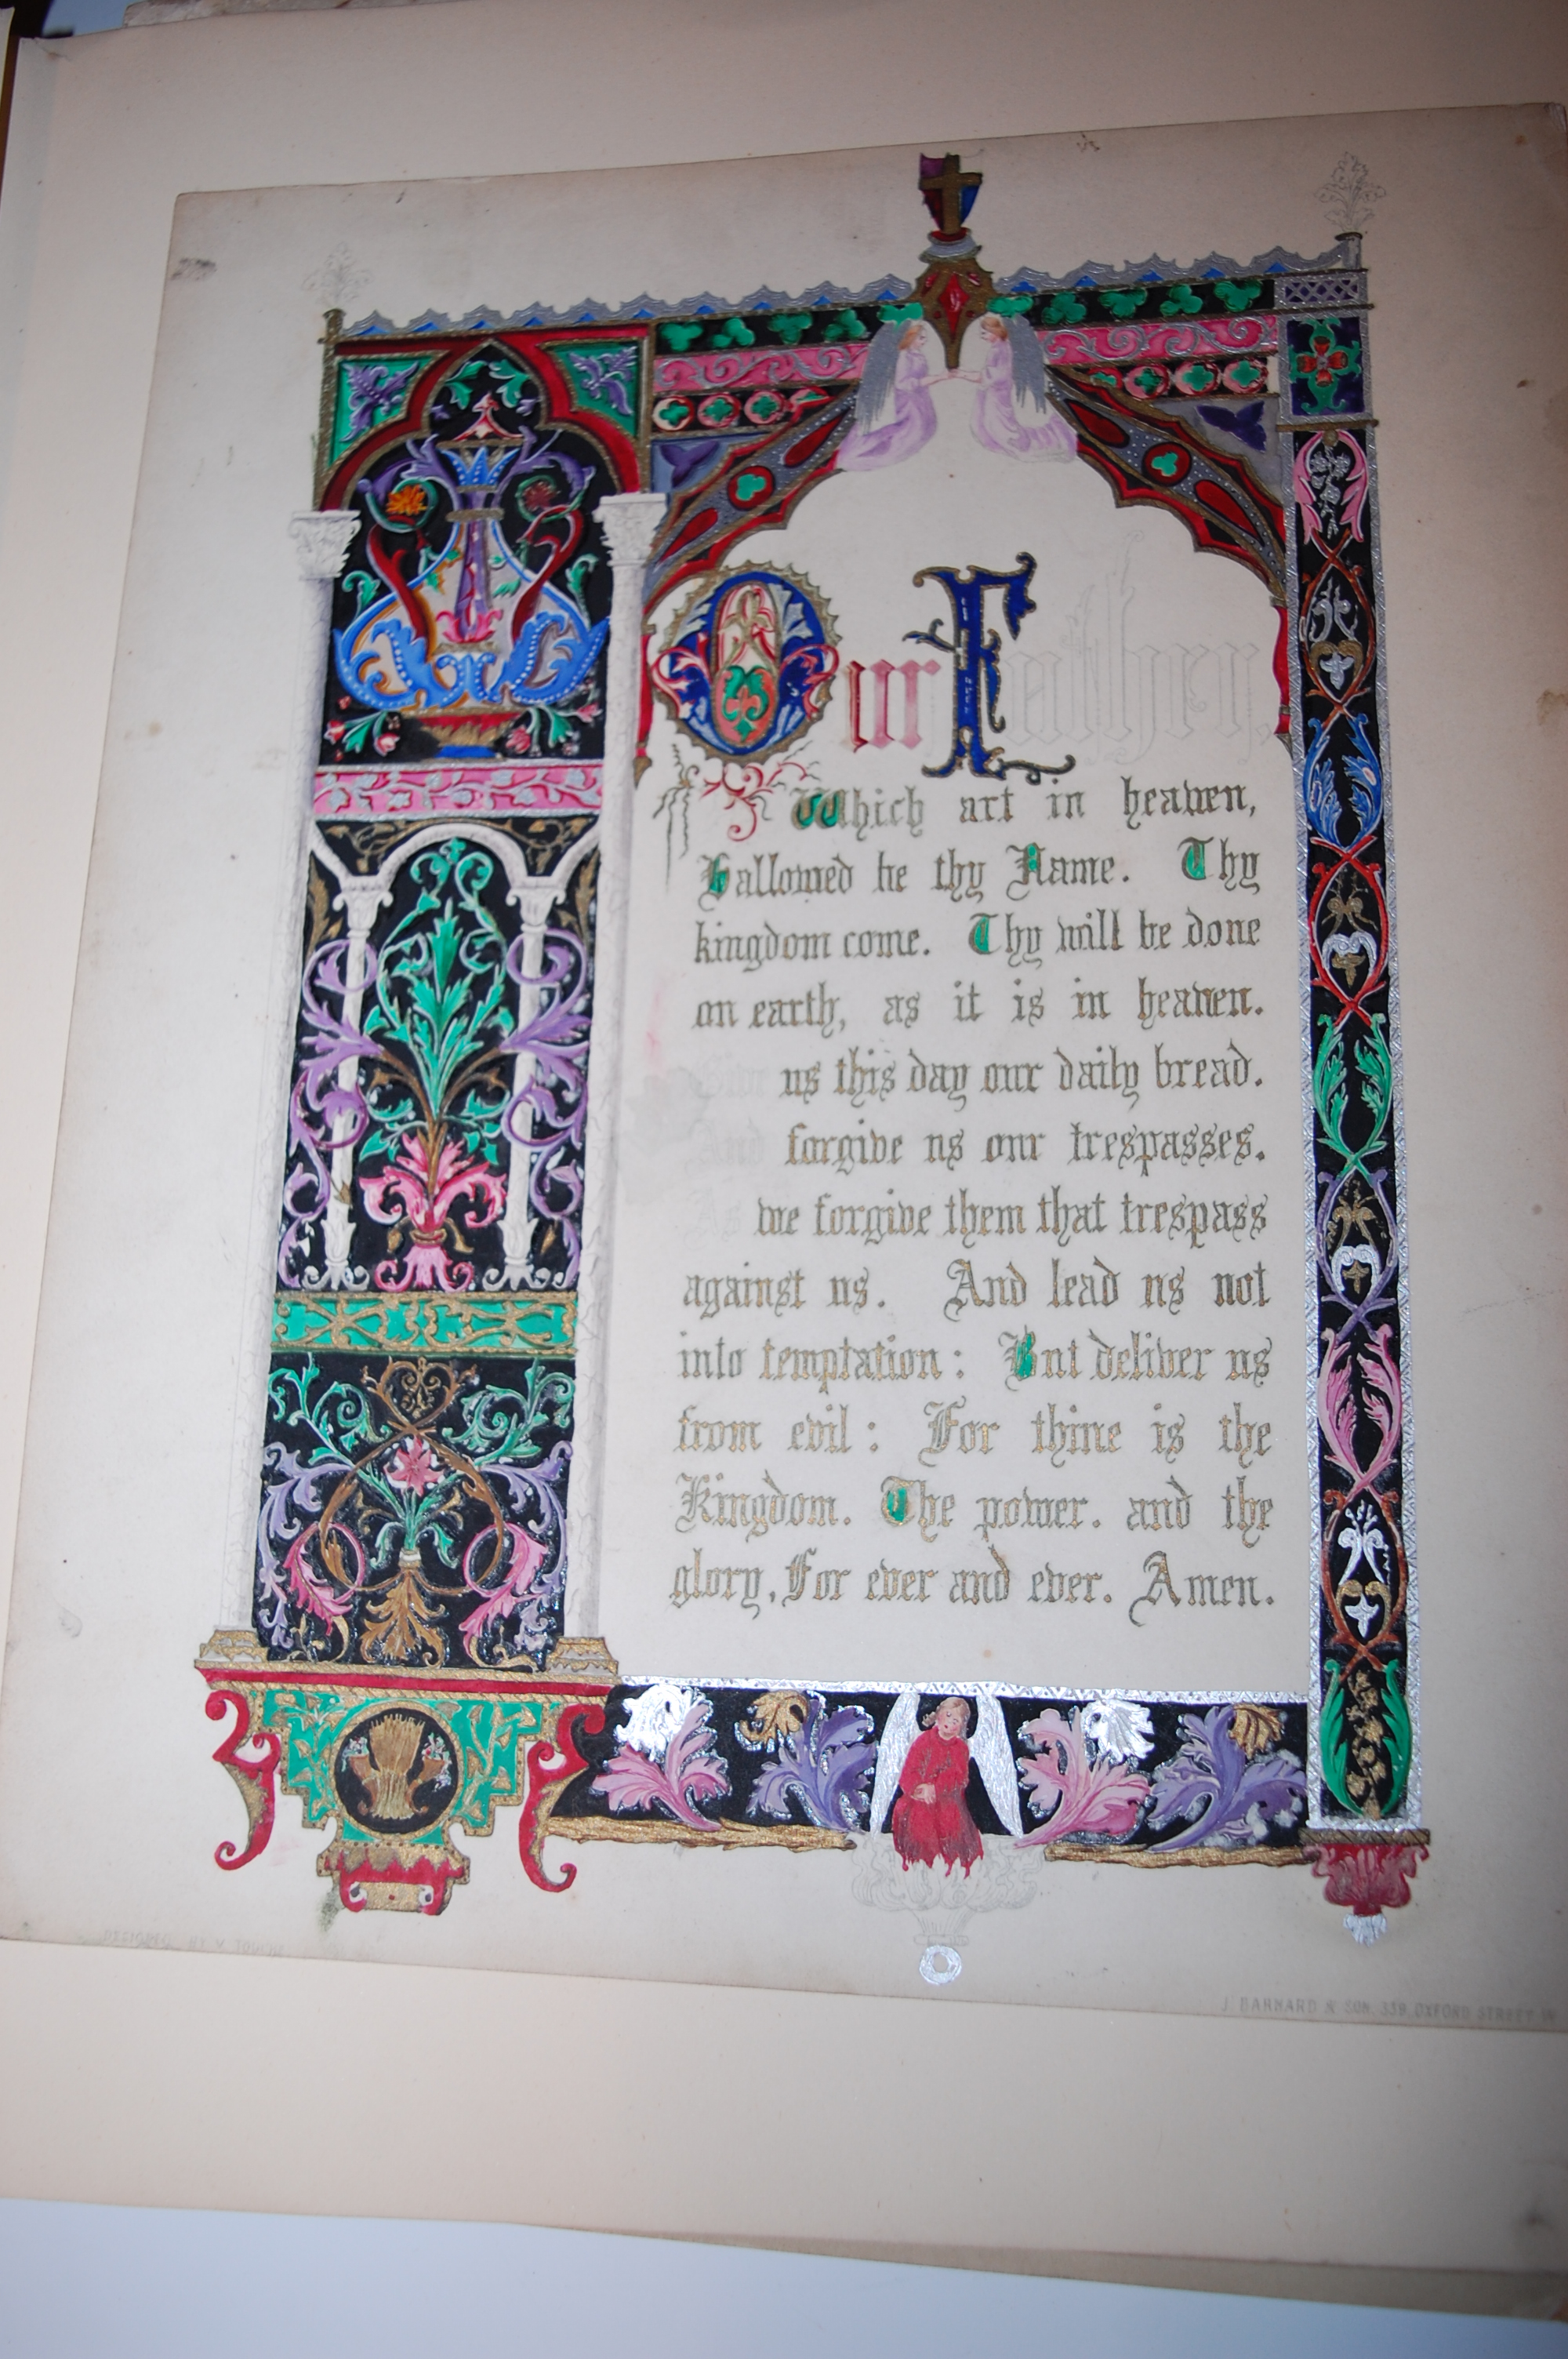 Our Father,
Which art in heaven,
Hallowed be thy Name. Thy
kingdom come. Thy will be done
on earth, as it is in heaven.
Give us this day our daily bread.
And forgive us our trespasses.
As we forgive them that trespass
against us. And lead us not
into temptation: But deliver us
from evil: For thine is the
Kingdom. The power. and the
glory, For ever and ever. Amen.
DESIGNED BY V. TOUCHE
J. BARNARD & SON, 339, OXFORD STREET W